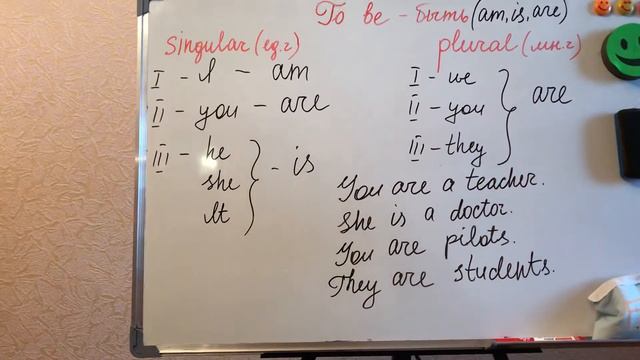 To be - быть (am, is, are)
singular (ед.ч)
I - I - am
II - you - are
III - he
she
it
- is
plural (мн.ч)
I - we
II - you
III - they
are
You are a teacher.
She is a doctor.
You are pilots.
They are students.